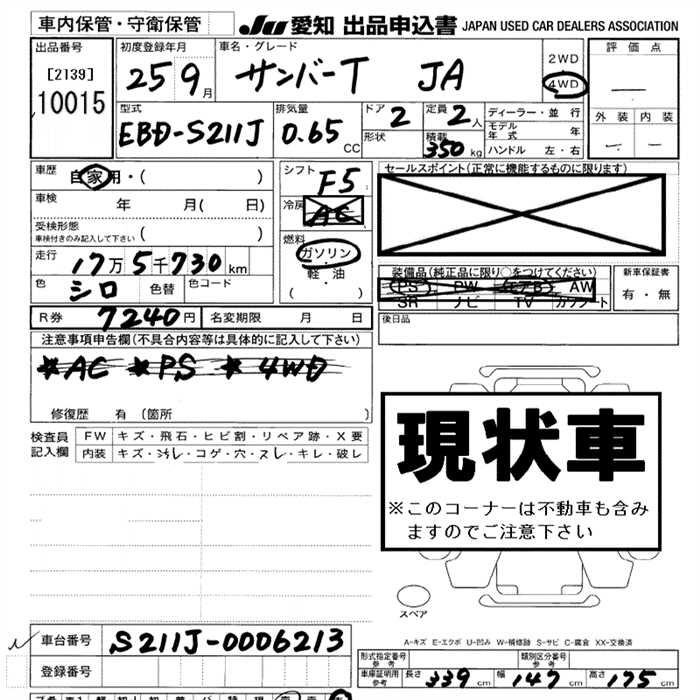 車内保管・守衛保管
JU 愛知 出品申込書 JAPAN USED CAR DEALERS ASSOCIATION
出品番号 [2139] 10015
初度登録年月 25 9月
車名・グレード サンバーT JA
2WD 4WD
評価点 —
外装 — 内装 —
型式 EBD-S211J
排気量 0.65 CC
ドア 2 形状
定員 2人 積載 350kg
ディーラー・並行
モデル年式 年
ハンドル 左・右
車歴 自家用・( )
車検 年 月( 日)
受検形態 車検付きのみ記入して下さい ( )
走行 17万5千730km
色 シロ 色替 色コード
シフト F5
冷房 AC
燃料 ガソリン・軽油 ( )
セールスポイント(正常に機能するものに限ります)
装備品(純正品に限り○をつけてください)
PS PW エアB AW
SR ナビ TV カワシート
新車保証書 有・無
R券 7240円 名変期限 月 日
後日品
注意事項申告欄(不具合内容等は具体的に記入して下さい)
*AC *PS *4WD
修復歴 有 (箇所 )
検査員記入欄
FW キズ・飛石・ヒビ割・リペア跡・X要
内装 キズ・汚レ・コゲ・穴・ヌレ・キレ・破レ
現状車
※このコーナーは不動車も含み
ますのでご注意下さい
スペア
A-キズ E-エクボ U-凹み W-補修跡 S-サビ C-腐食 XX-交換済
車台番号 S211J-0006213
登録番号
形式指定番号 参考 類別区分番号 参考
車庫証明用参考 長さ 339cm 幅 147cm 高さ 175cm